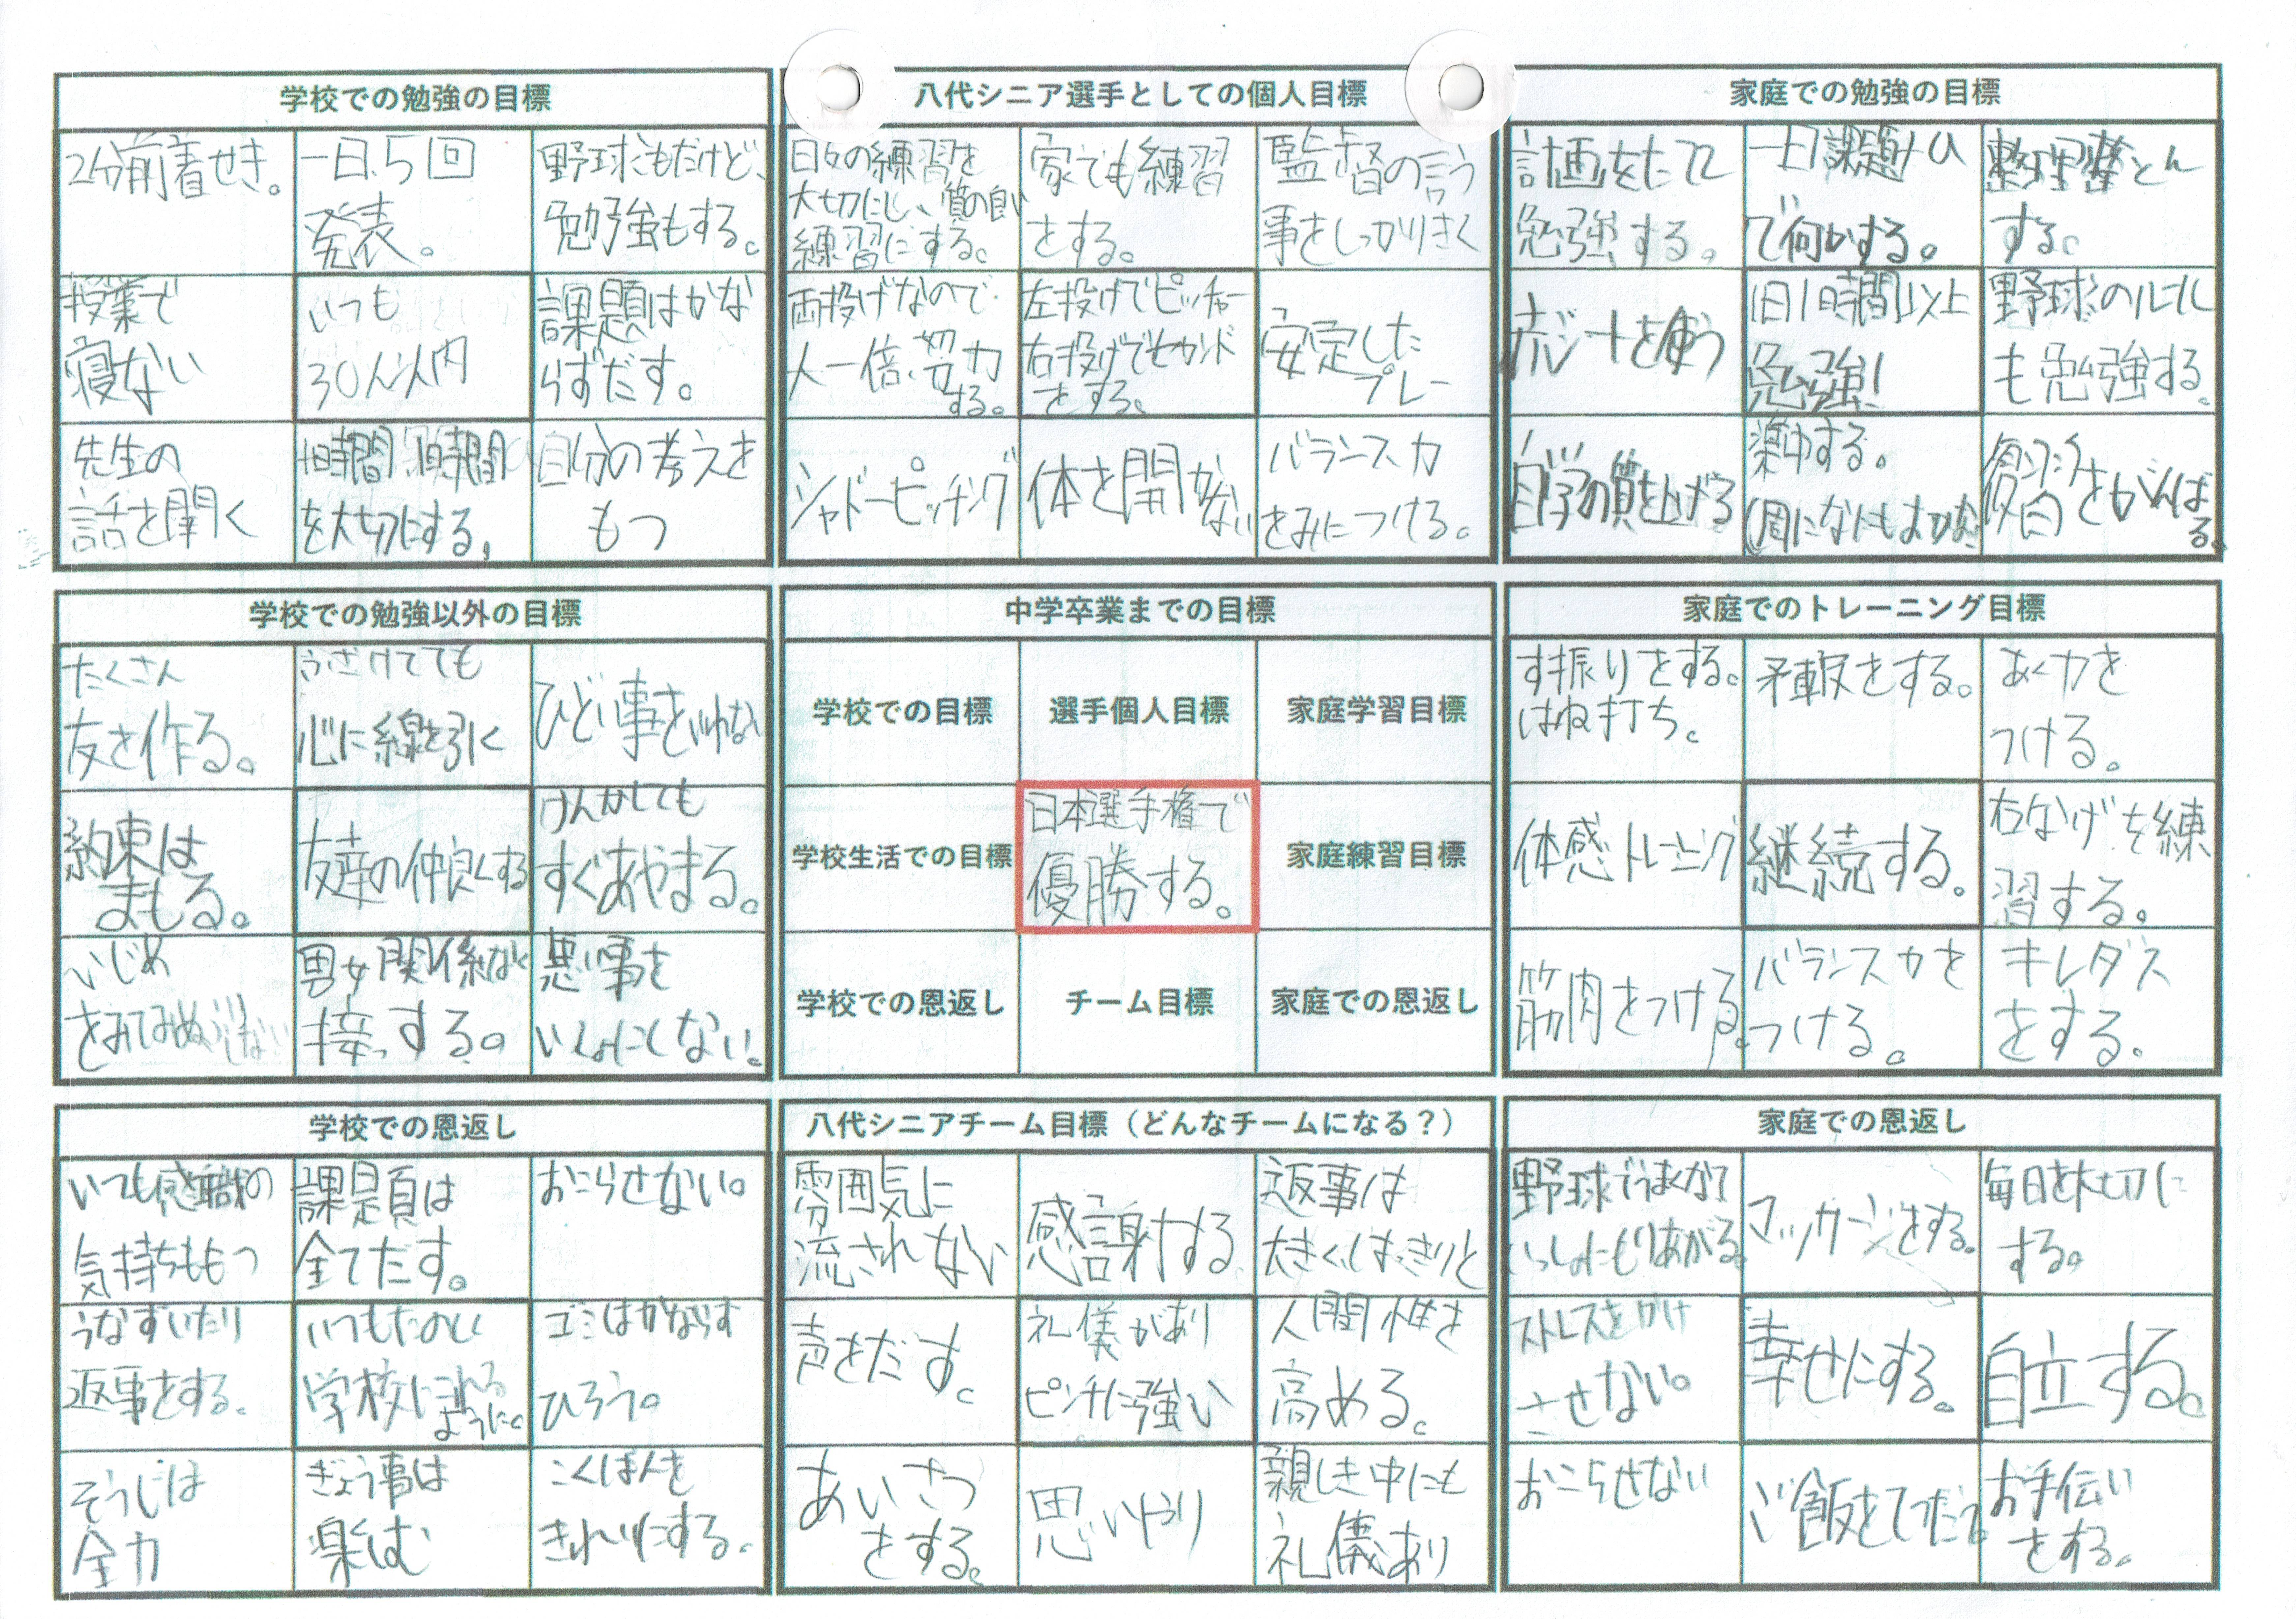 学校での勉強の目標
2分前着せき。
一日、5回
発表。
野球もだけど、
勉強もする。
授業で
寝ない
いつも
30人以内
課題はかな
らずだす。
先生の
話を聞く
1時間1時間
を大切にする。
自分の考えを
もつ
八代シニア選手としての個人目標
日々の練習を
大切にし、質の良い
練習にする。
家でも練習
をする。
監督の言う
事をしっかりきく
両投げなので
人一倍、努力
する。
左投げでピッチャー
右投げでセカンド
をする。
安定した
プレー
シャドーピッチング
体を開かない
バランス力
をみにつける。
家庭での勉強の目標
計画をたてて
勉強する。
で何かする。
整理整とん
する。
を使う
1日1時間以上
勉強!
野球のルール
も勉強する。
自学の質を上げる
集中する。
をがんば
る。
学校での勉強以外の目標
たくさん
友を作る。
ふざけてても
心に線を引く
ひどい事をいわない
約束は
まもる。
友達の仲良くする
けんかしても
すぐあやまる。
いじめ
をみてみぬふりしない
男女関係なく
接っする。
悪い事を
いっしょにしない。
中学卒業までの目標
学校での目標
選手個人目標
家庭学習目標
学校生活での目標
日本選手権で
優勝する。
家庭練習目標
学校での恩返し
チーム目標
家庭での恩返し
家庭でのトレーニング目標
す振りをする。
はね打ち。
をする。
あく力を
つける。
体感トレーニング
継続する。
右なげを練
習する。
筋肉をつける。
バランス力を
つける。
キレダス
をする。
学校での恩返し
いつも感職の
気持ちももつ
課題は
全てだす。
おこらせない。
うなずいたり
返事をする。
いつもたのしく
学校にこれる
ように。
ゴミはかならず
ひろう。
そうじは
全力
ぎょう事は
楽しむ
こくばんを
きれいにする。
八代シニアチーム目標（どんなチームになる？）
雰囲気に
流されない
感謝する
返事は
大きくはっきりと
声をだす。
礼儀があり
ピンチに強い
人間性を
高める。
あいさつ
をする。
思いやり
親しき中にも
礼儀あり
家庭での恩返し
野球でうまくなって
いっしょにもりあがる。
マッサージをする。
毎日を大切に
する。
ストレスをかけ
させない。
幸せにする。
自立する。
おこらせない
ご飯をてつだう
お手伝い
をする。